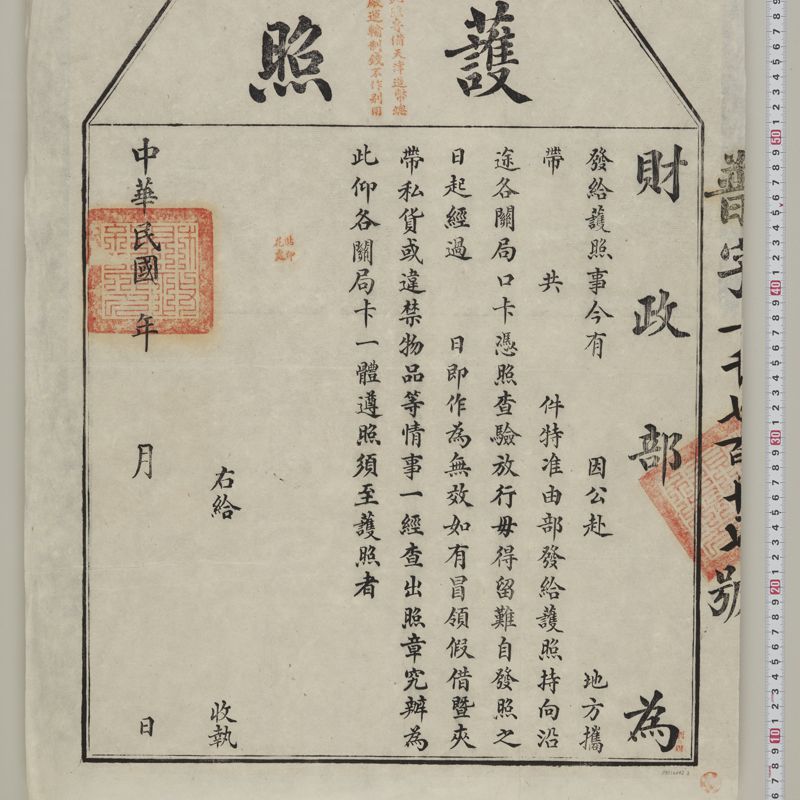 護照
專備天津造幣總
廠運輸制錢不作別用
普字一千七百廿七號
財政部為
發給護照事今有 因公赴 地方攜
帶 共 件特准由部發給護照持向沿
途各關局口卡憑照查驗放行毋得留難自發照之
日起經過 日即作為無效如有冒領假借暨夾
帶私貨或違禁物品等情事一經查出照章究辦為
此仰各關局卡一體遵照須至護照者
貼印
花處
右給 收執
中華民國 年 月 日